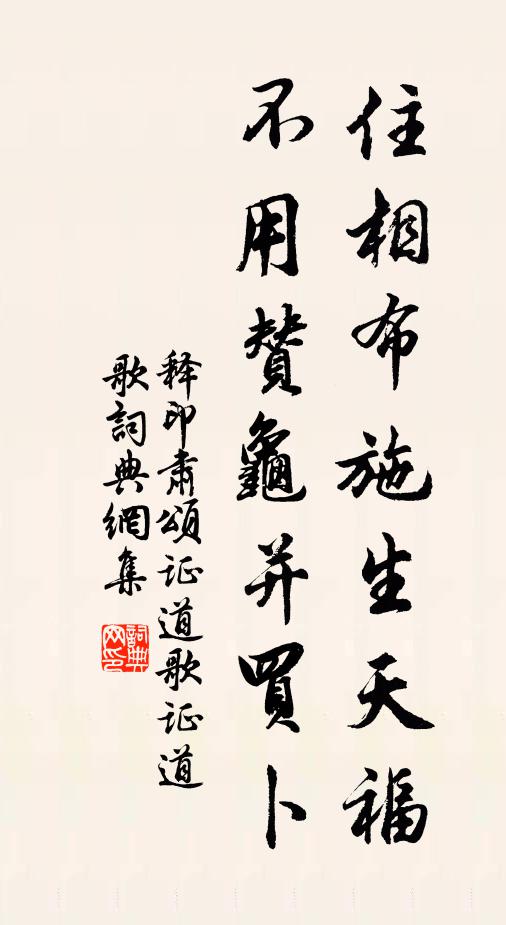 住相布施生天福
不用贊龜并買卜
释印肅頌证道歌证道
歌詞典網集
詞典
网印